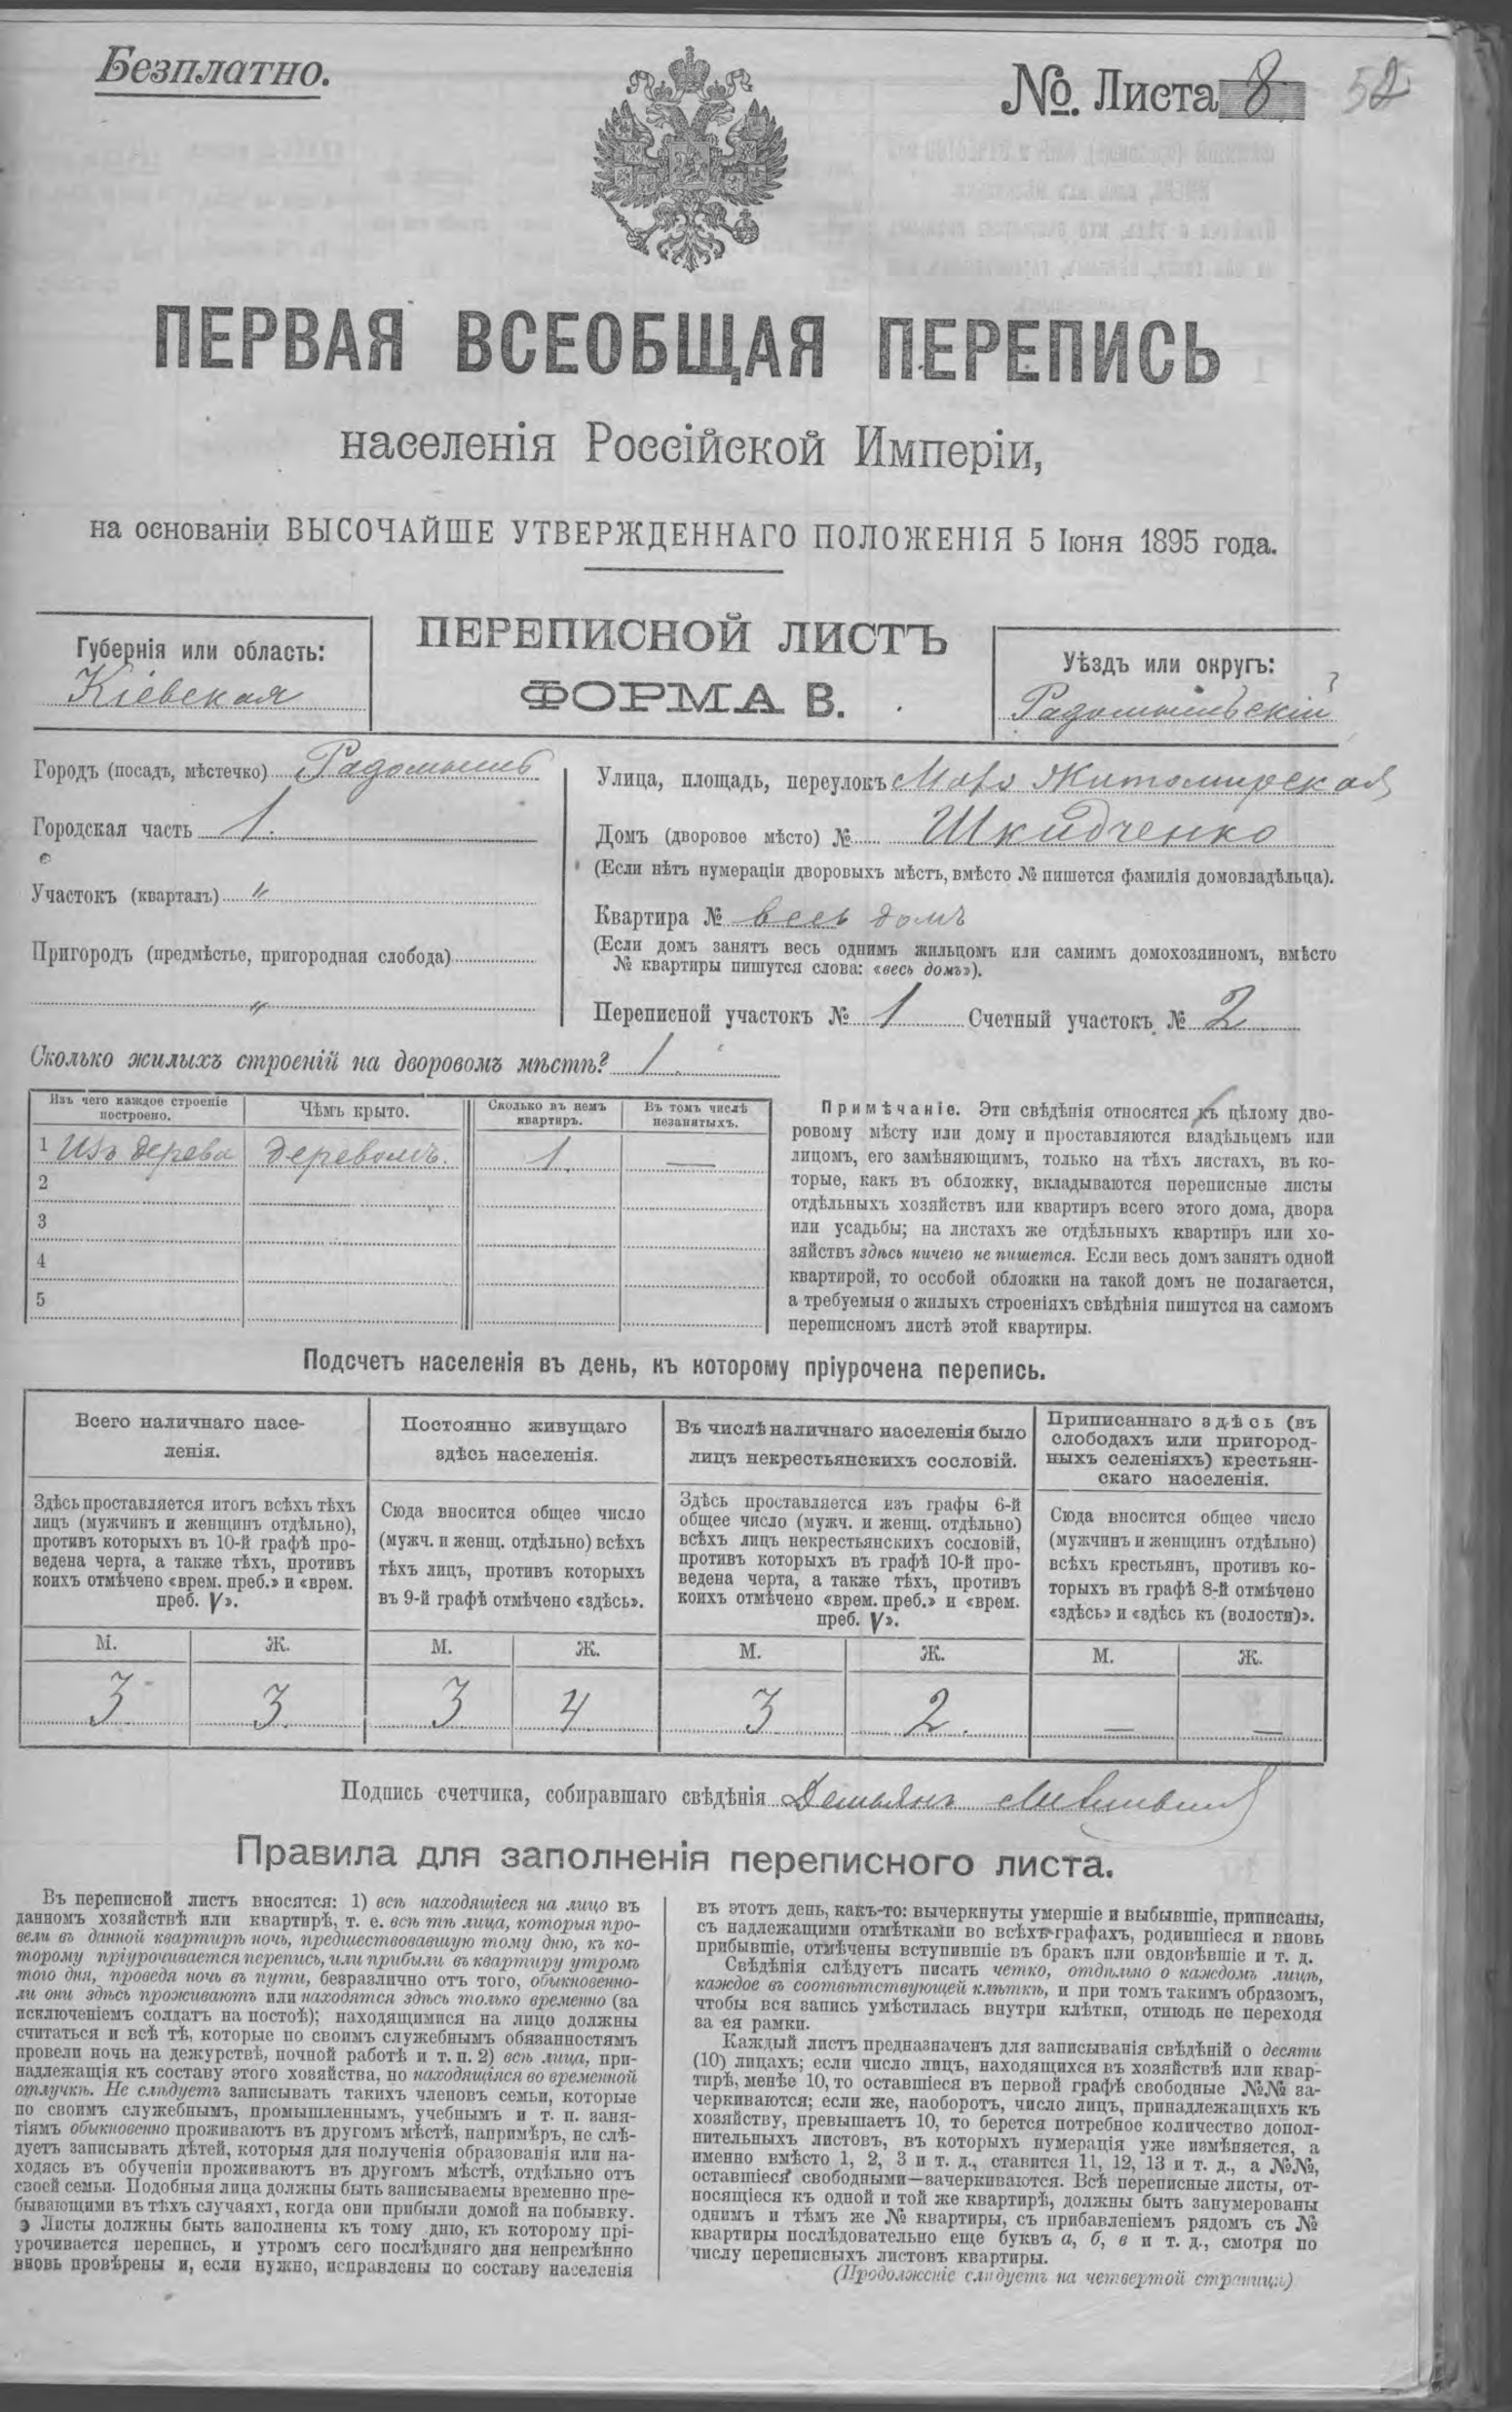 Безплатно.
№. Листа 8 52
ПЕРВАЯ ВСЕОБЩАЯ ПЕРЕПИСЬ
населенія Россійской Имперіи,
на основаніи ВЫСОЧАЙШЕ УТВЕРЖДЕННАГО ПОЛОЖЕНІЯ 5 Іюня 1895 года.
Губернія или область:
Кіевская
ПЕРЕПИСНОЙ ЛИСТЪ
ФОРМА В.
Уѣздъ или округъ:
Радомысльскій
Городъ (посадъ, мѣстечко) Радомысль
Городская часть 1.
Участокъ (кварталъ) "
Пригородъ (предмѣстье, пригородная слобода)
"
Улица, площадь, переулокъ Житомирская
Домъ (дворовое мѣсто) № Шкидченко
(Если нѣтъ нумераціи дворовыхъ мѣстъ, вмѣсто № пишется фамилія домовладѣльца).
Квартира № весь домъ
(Если домъ занятъ весь однимъ жильцомъ или самимъ домохозяиномъ, вмѣсто
№ квартиры пишутся слова: «весь домъ»).
Переписной участокъ № 1 Счетный участокъ № 2
Сколько жилыхъ строеній на дворовомъ мѣстѣ? 1
Изъ чего каждое строеніе
построено.
Чѣмъ крыто.
Сколько въ немъ
квартиръ.
Въ томъ числѣ
незанятыхъ.
1 Изъ дерева деревомъ. 1 —
2
3
4
5
Примѣчаніе. Эти свѣдѣнія относятся къ цѣлому дво-
ровому мѣсту или дому и проставляются владѣльцемъ или
лицомъ, его замѣняющимъ, только на тѣхъ листахъ, въ ко-
торые, какъ въ обложку, вкладываются переписные листы
отдѣльныхъ хозяйствъ или квартиръ всего этого дома, двора
или усадьбы; на листахъ же отдѣльныхъ квартиръ или хо-
зяйствъ здѣсь ничего не пишется. Если весь домъ занятъ одной
квартирой, то особой обложки на такой домъ не полагается,
а требуемыя о жилыхъ строеніяхъ свѣдѣнія пишутся на самомъ
переписномъ листѣ этой квартиры.
Подсчетъ населенія въ день, къ которому пріурочена перепись.
Всего наличнаго насе-
ленія.
Постоянно живущаго
здѣсь населенія.
Въ числѣ наличнаго населенія было
лицъ некрестьянскихъ сословій.
Приписаннаго здѣсь (въ
слободахъ или пригород-
ныхъ селеніяхъ) крестьян-
скаго населенія.
Здѣсь проставляется итогъ всѣхъ тѣхъ
лицъ (мужчинъ и женщинъ отдѣльно),
противъ которыхъ въ 10-й графѣ про-
ведена черта, а также тѣхъ, противъ
коихъ отмѣчено «врем. преб.» и «врем.
преб. V».
Сюда вносится общее число
(мужч. и женщ. отдѣльно) всѣхъ
тѣхъ лицъ, противъ которыхъ
въ 9-й графѣ отмѣчено «здѣсь».
Здѣсь проставляется изъ графы 6-й
общее число (мужч. и женщ. отдѣльно)
всѣхъ лицъ некрестьянскихъ сословій,
противъ которыхъ въ графѣ 10-й про-
ведена черта, а также тѣхъ, противъ
коихъ отмѣчено «врем. преб.» и «врем.
преб. V».
Сюда вносится общее число
(мужчинъ и женщинъ отдѣльно)
всѣхъ крестьянъ, противъ ко-
торыхъ въ графѣ 8-й отмѣчено
«здѣсь» и «здѣсь къ (волости)».
М. Ж. М. Ж. М. Ж. М. Ж.
3 3 3 4 3 2 — —
Подпись счетчика, собиравшаго свѣдѣнія Демьянъ
Правила для заполненія переписного листа.
Въ переписной листъ вносятся: 1) всѣ находящіеся на лицо въ
данномъ хозяйствѣ или квартирѣ, т. е. всѣ тѣ лица, которыя про-
вели въ данной квартирѣ ночь, предшествовавшую тому дню, къ ко-
торому пріурочивается перепись, или прибыли въ квартиру утромъ
того дня, проведя ночь въ пути, безразлично отъ того, обыкновенно-
ли они здѣсь проживаютъ или находятся здѣсь только временно (за
исключеніемъ солдатъ на постоѣ); находящимися на лицо должны
считаться и всѣ тѣ, которые по своимъ служебнымъ обязанностямъ
провели ночь на дежурствѣ, ночной работѣ и т. п. 2) всѣ лица, при-
надлежащія къ составу этого хозяйства, но находящіяся во временной
отлучкѣ. Не слѣдуетъ записывать такихъ членовъ семьи, которые
по своимъ служебнымъ, промышленнымъ, учебнымъ и т. п. заня-
тіямъ обыкновенно проживаютъ въ другомъ мѣстѣ, напримѣръ, не слѣ-
дуетъ записывать дѣтей, которыя для полученія образованія или на-
ходясь въ обученіи проживаютъ въ другомъ мѣстѣ, отдѣльно отъ
своей семьи. Подобныя лица должны быть записываемы временно пре-
бывающими въ тѣхъ случаяхъ, когда они прибыли домой на побывку.
Листы должны быть заполнены къ тому дню, къ которому прі-
урочивается перепись, и утромъ сего послѣдняго дня непремѣнно
вновь провѣрены и, если нужно, исправлены по составу населенія
въ этотъ день, какъ-то: вычеркнуты умершіе и выбывшіе, приписаны,
съ надлежащими отмѣтками во всѣхъ графахъ, родившіеся и вновь
прибывшіе, отмѣчены вступившіе въ бракъ или овдовѣвшіе и т. д.
Свѣдѣнія слѣдуетъ писать четко, отдѣльно о каждомъ лицѣ,
каждое въ соотвѣтствующей клѣткѣ, и при томъ такимъ образомъ,
чтобы вся запись умѣстилась внутри клѣтки, отнюдь не переходя
за ея рамки.
Каждый листъ предназначенъ для записыванія свѣдѣній о десяти
(10) лицахъ; если число лицъ, находящихся въ хозяйствѣ или квар-
тирѣ, менѣе 10, то оставшіеся въ первой графѣ свободные №№ за-
черкиваются; если же, наоборотъ, число лицъ, принадлежащихъ къ
хозяйству, превышаетъ 10, то берется потребное количество допол-
нительныхъ листовъ, въ которыхъ нумерація уже измѣняется, а
именно вмѣсто 1, 2, 3 и т. д., ставится 11, 12, 13 и т. д., а №№,
оставшіеся свободными—зачеркиваются. Всѣ переписные листы, от-
носящіеся къ одной и той же квартирѣ, должны быть занумерованы
однимъ и тѣмъ же № квартиры, съ прибавленіемъ рядомъ съ №
квартиры послѣдовательно еще буквъ а, б, в и т. д., смотря по
числу переписныхъ листовъ квартиры.
(Продолженіе слѣдуетъ на четвертой страницѣ)